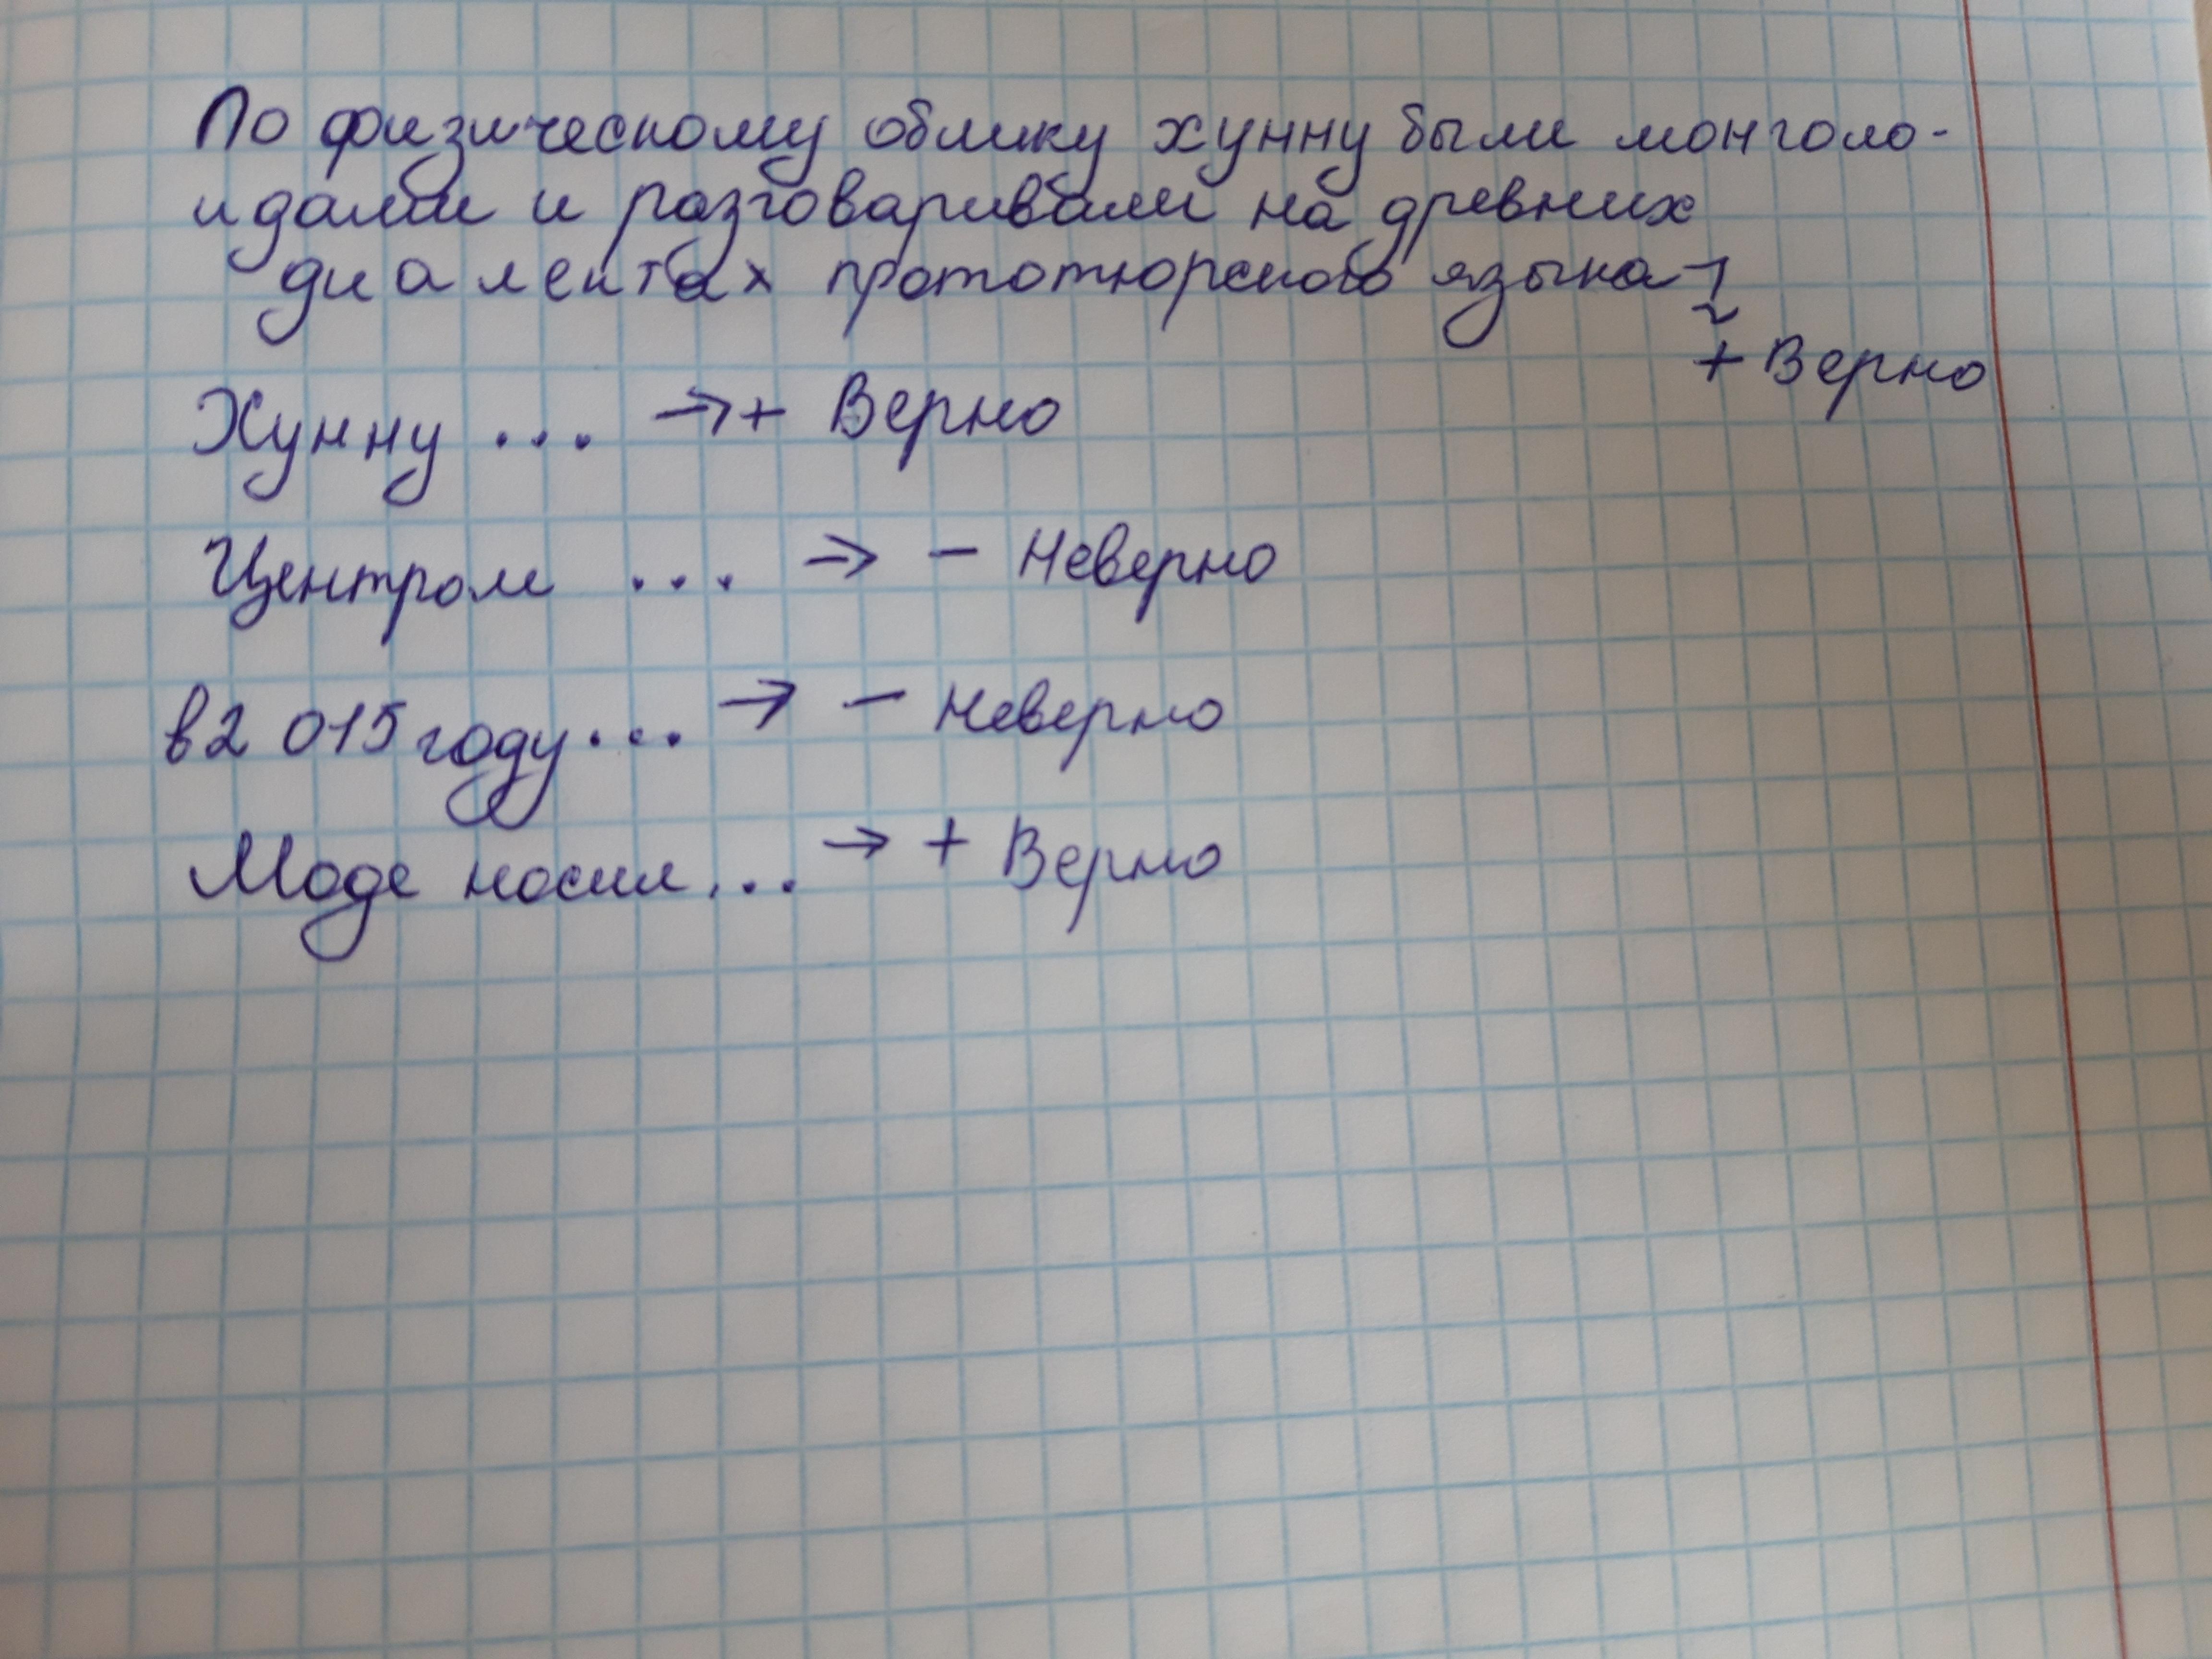 По физическому облику хунну были монголо-
идами и разговаривали на древних
диалектах прототюрского языка →
+ Верно
Хунну ... →+ Верно
Центром ... → - Неверно
в 2 015 году ... → - Неверно
Моде носил ... → + Верно